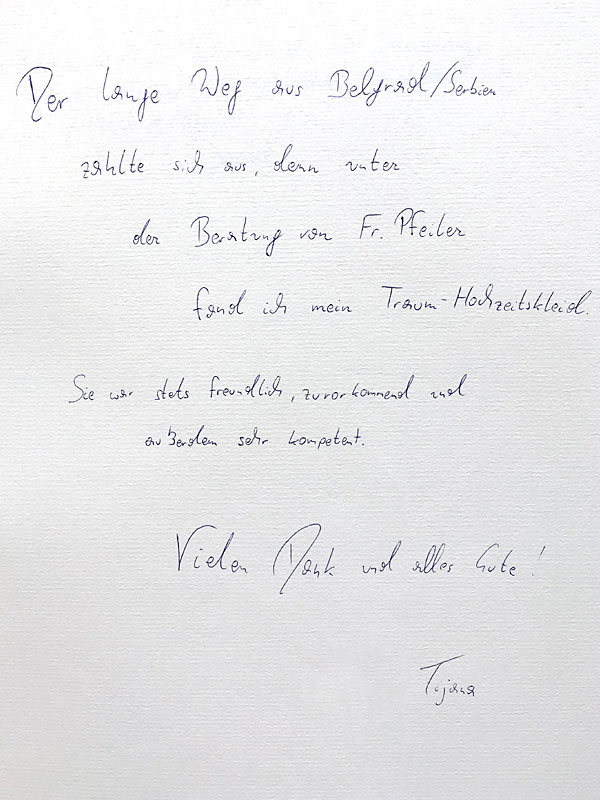 Der lange Weg aus Belgrad/Serbien
zahlte sich aus, denn unter
der Beratung von Fr. Pfeiler
fand ich mein Traum-Hochzeitskleid.
Sie war stets freundlich, zuvorkommend und
außerdem sehr kompetent.
Vielen Dank und alles Gute!
Tijana